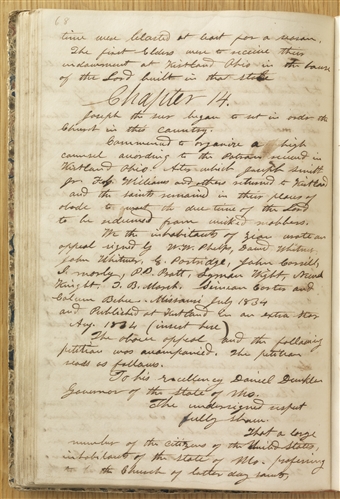 68
time were blasted at least for a season.
The first Elders were to receive their
endowment at Kirtland Ohio in the house
of the Lord built in that state
Chapter 14.
Joseph the seer began to set in order the
Church in this country.
Commenced to organize a high
council according to the pattern received in
Kirtland Ohio. After which Joseph Smith
Jr. F. G. Williams and others returned to Kirtland
and the saints remained in their places of
abode to wait the due time of the Lord
to be redeemed from wicked robbers.
We the inhabitants of Zion wrote an
appeal signed by W. W. Phelps, David Whitmer,
John Whitmer, E. Partridge, John Corrill,
I. Morley, P. P. Pratt, Lyman Wight, Newel
Knight, T. B. Marsh, Simeon Carter and
Calvin Bebee. Missouri July 1834
and Published at Kirtland in an extra Star
Aug. 1834 (insert here)
The above appeal and the following
petition was accompanied. The petition
reads as follows.
To his excellency Daniel Dunklin
Governor of the State of Mo.
The undersigned respect
fully shew.
That a large
number of the citizens of the United States,
inhabitants of the State of Mo. professing
to the Church of latter day saints,